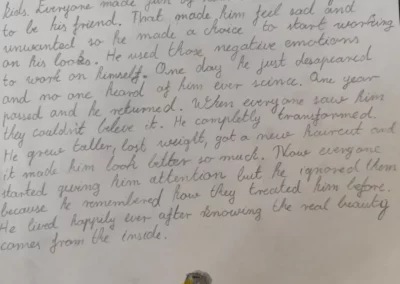 kids. Everyone made fun of
to be his friend. That made him feel sad and
unwanted so he made a choice to start working
on his looks. He used those negative emotions
to work on himself. One day he just desapeared
and no one heard of him ever scince. One year
passed and he returned. When everyone saw him
they couldn't beleve it. He completly transformed.
He grew taller, lost weight, got a new haircut and
it made him look better so much. Now everyone
started giving him attention but he ignored them
because he remembered how they treated him before.
He lived happily ever after knowing the real beautiy
comes from the inside.